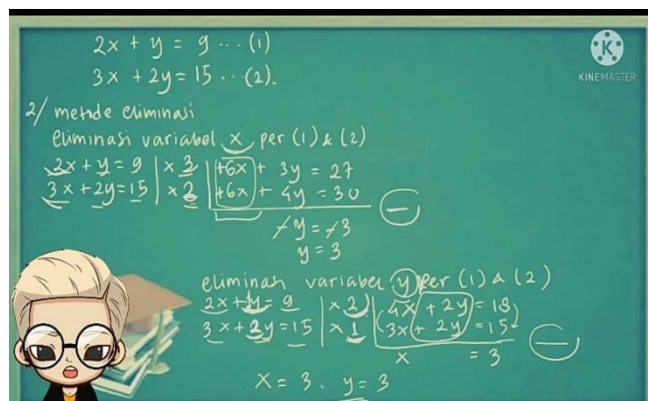 2x + y = 9 ... (1)
3x + 2y = 15 .. (2).
K
KINEMASTER
2/ metode eliminasi
eliminasi variabel x per (1) & (2)
2x + y = 9 | x 3 | +6x + 3y = 27
3x + 2y = 15 | x 2 | +6x + 4y = 30
-y = -3
y = 3
eliminasi variabel y per (1) & (2)
2x + y = 9 | x 2 | 4x + 2y = 18
3x + 2y = 15 | x 1 | 3x + 2y = 15
x = 3
x = 3, y = 3